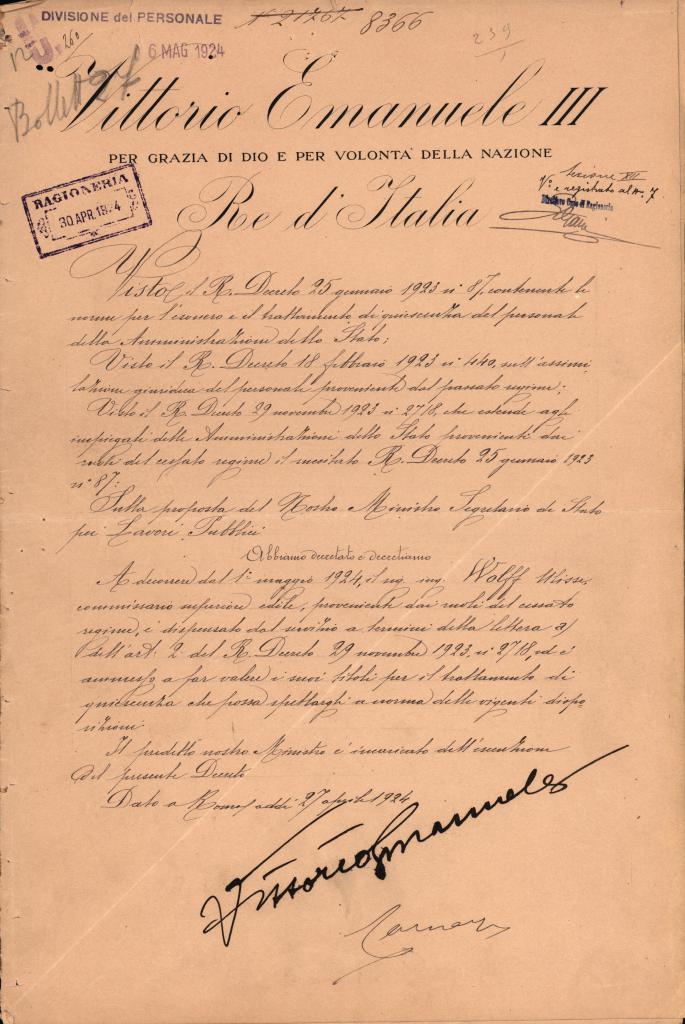 DIVISIONE del PERSONALE
N 21767 8366
239
6 MAG 1924
Bollett 27
Vittorio Emanuele III
PER GRAZIA DI DIO E PER VOLONTÀ DELLA NAZIONE
Re d'Italia
RAGIONERIA
30 APR. 1924
Sezione XII
V° e registrato al n. 7
Visto il R. Decreto 25 gennaio 1923 n° 87, contenente le
norme per l'esonero e il trattamento di quiescenza del personale
della Amministrazione dello Stato;
Visto il R. Decreto 18 febbraio 1923 n° 440, sull'assimi
lazione giuridica del personale proveniente dal passato regime;
Visto il R. Decreto 29 novembre 1923 n° 2718, che estende agli
impiegati delle Amministrazioni dello Stato provenienti dai
ruoli del cessato regime il succitato R. Decreto 25 gennaio 1923
n° 87:
Sulla proposta del Nostro Ministro Segretario di Stato
pei Lavori Pubblici
Abbiamo decretato e decretiamo
A decorrere dal 1° maggio 1924, il sig. ing. Wolff Ulisse,
commissario superiore edile, proveniente dai ruoli del cessato
regime, è dispensato dal servizio a termini della lettera a)
dell'art. 2 del R. Decreto 29 novembre 1923, n° 2718, ed è
ammesso a far valere i suoi titoli per il trattamento di
quiescenza che possa spettargli a norma delle vigenti dispo
sizioni.
Il predetto nostro Ministro è incaricato dell'esecuzione
del presente Decreto
Dato a Roma addì 27 aprile 1924
Vittorio Emanuele